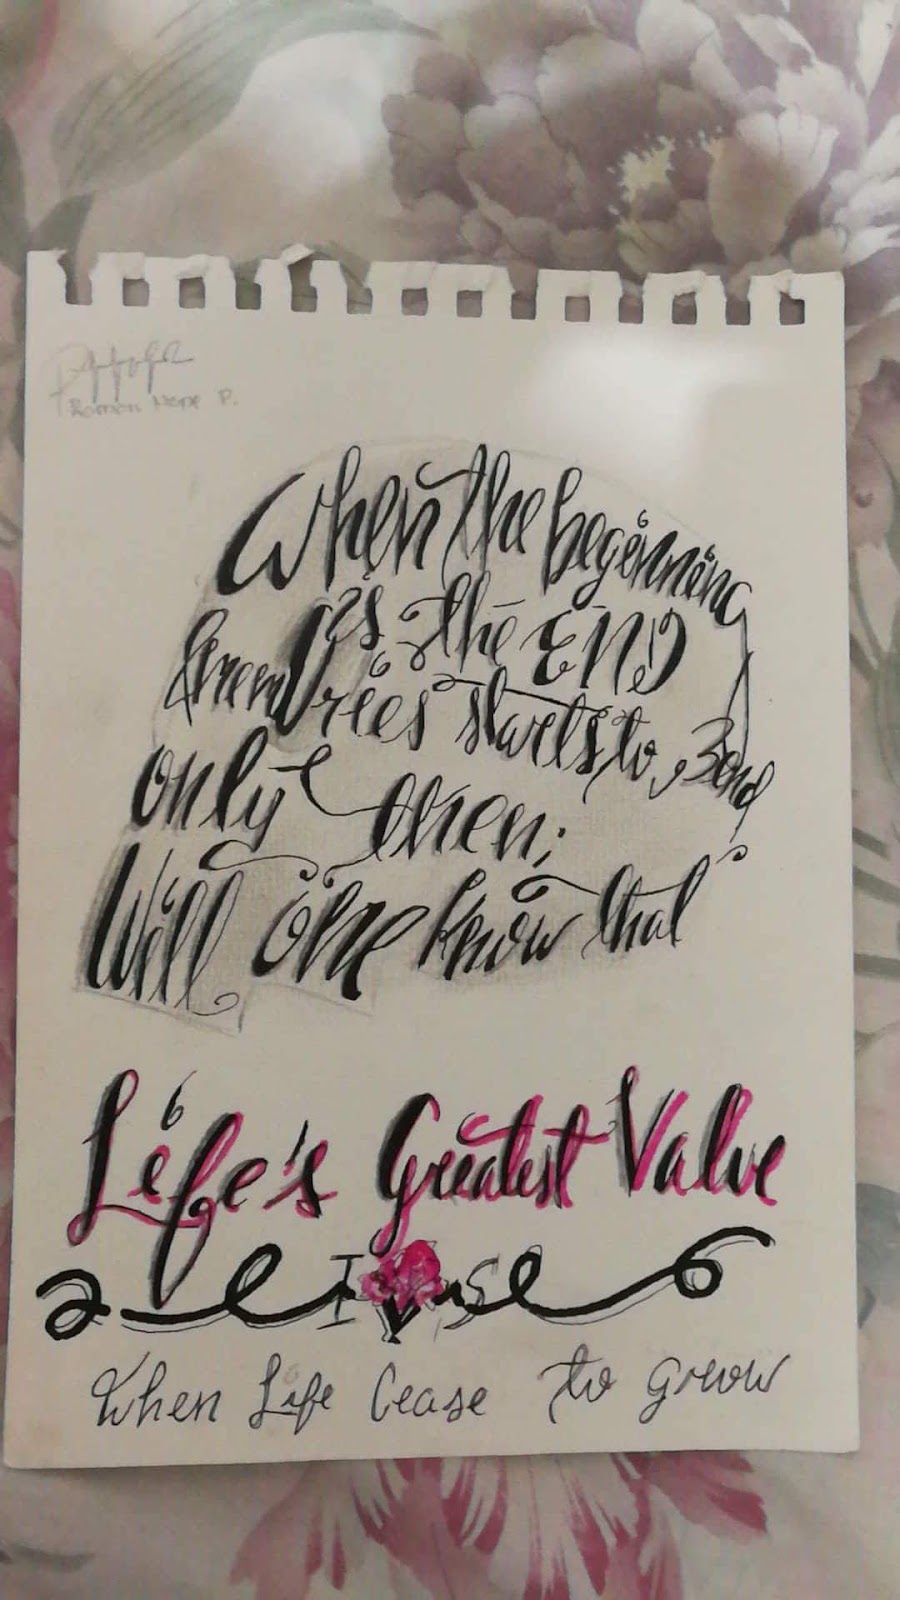 When the beginning
is the END
starts to Bend
only then;
Will one know that
Life's Greatest Value
IS
When Life Cease to grow